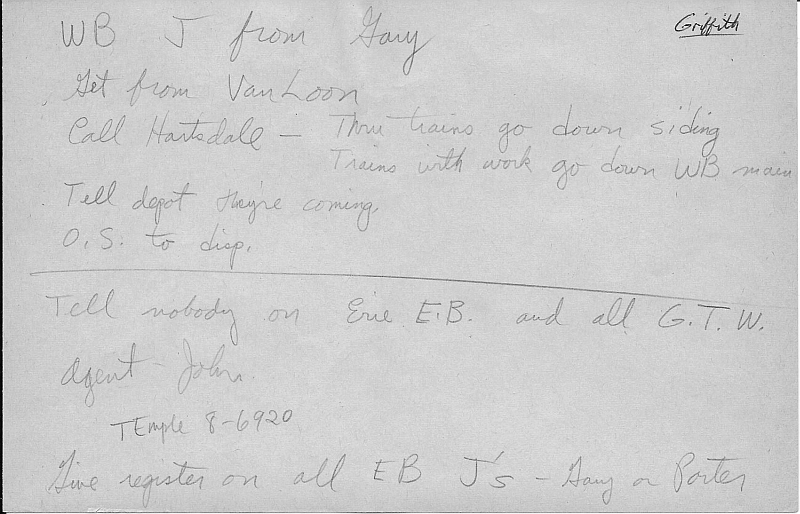 Griffith
WB J from Gary
Get from VanLoon
Call Hartsdale - Thru trains go down siding
Trains with work go down WB main
Tell depot they're coming.
O.S. to disp.
Tell nobody on Erie E.B. and all G.T.W.
Agent - John
TEmple 8-6920
Give register on all EB J's - Gary or Porter